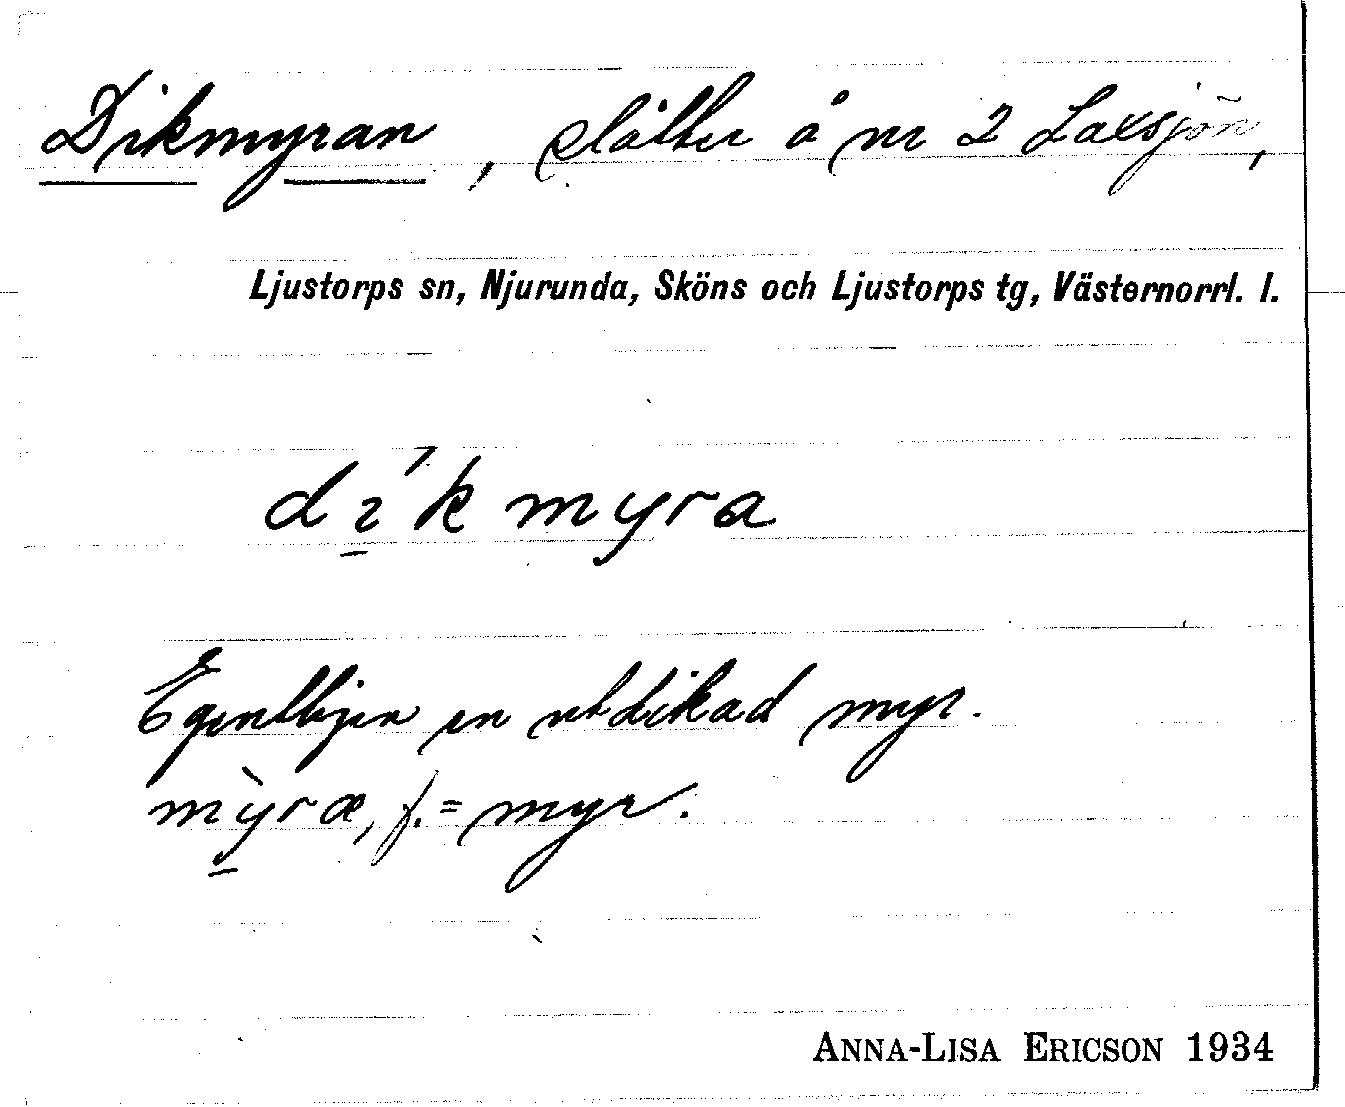 Dikmyran, slåtter å nr 2 Laxsjön,
Ljustorps sn, Njurunda, Sköns och Ljustorps tg, Västernorrl. l.
dı̱́kmyra
Egentligen en utdikad myr.
mỳ̱ra, f. = myr.
ANNA-LISA ERICSON 1934